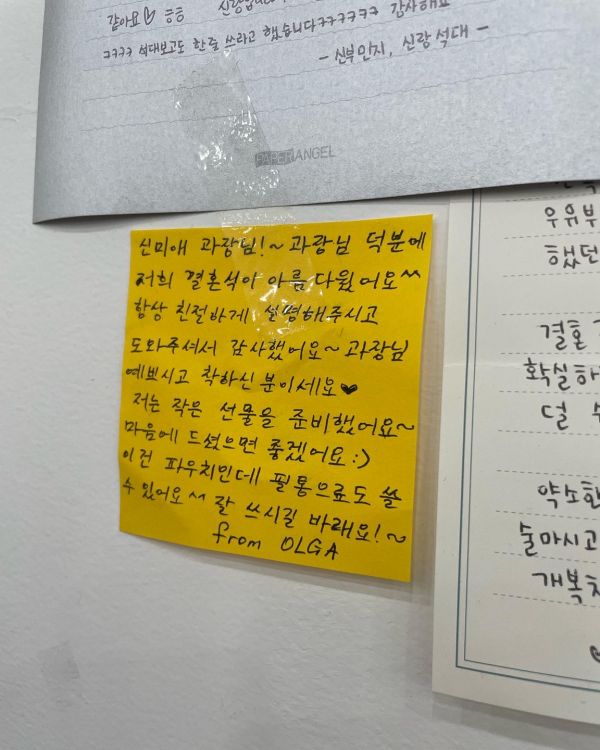 같아요 ㅎㅎ
ㅋㅋㅋㅋ 석대보고도 한줄 쓰라고 했습니다ㅋㅋㅋㅋㅋㅋ 감사해요
- 신부 민지, 신랑 석대 -
PAPER ANGEL
신미애 과장님!~ 과장님 덕분에
저희 결혼식아 아름다웠어요^^
항상 친절하게 설명해주시고
도와주셔서 감사했어요~ 과장님
예쁘시고 착하신 분이세요♥
저는 작은 선물을 준비했어요~
마음에 드셨으면 좋겠어요:)
이건 파우치인데 필통으로도 쓸
수 있어요^^ 잘 쓰시길 바래요!~
from OLGA
우유부
했던
결혼
확실하
덜
약소한
술마시고
개복치